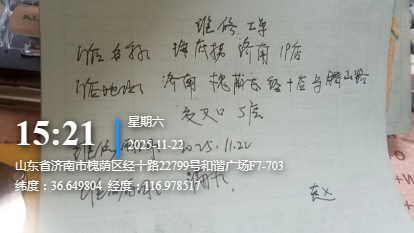 维修工单
门店名称 海底捞 济南19店
门店地址 济南 槐荫区 经十路与腊山路
交叉口 5层
15:21
星期六
2025-11-22
2025.11.22
山东省济南市槐荫区经十路22799号和谐广场F7-703
纬度：36.649804 经度：116.978517